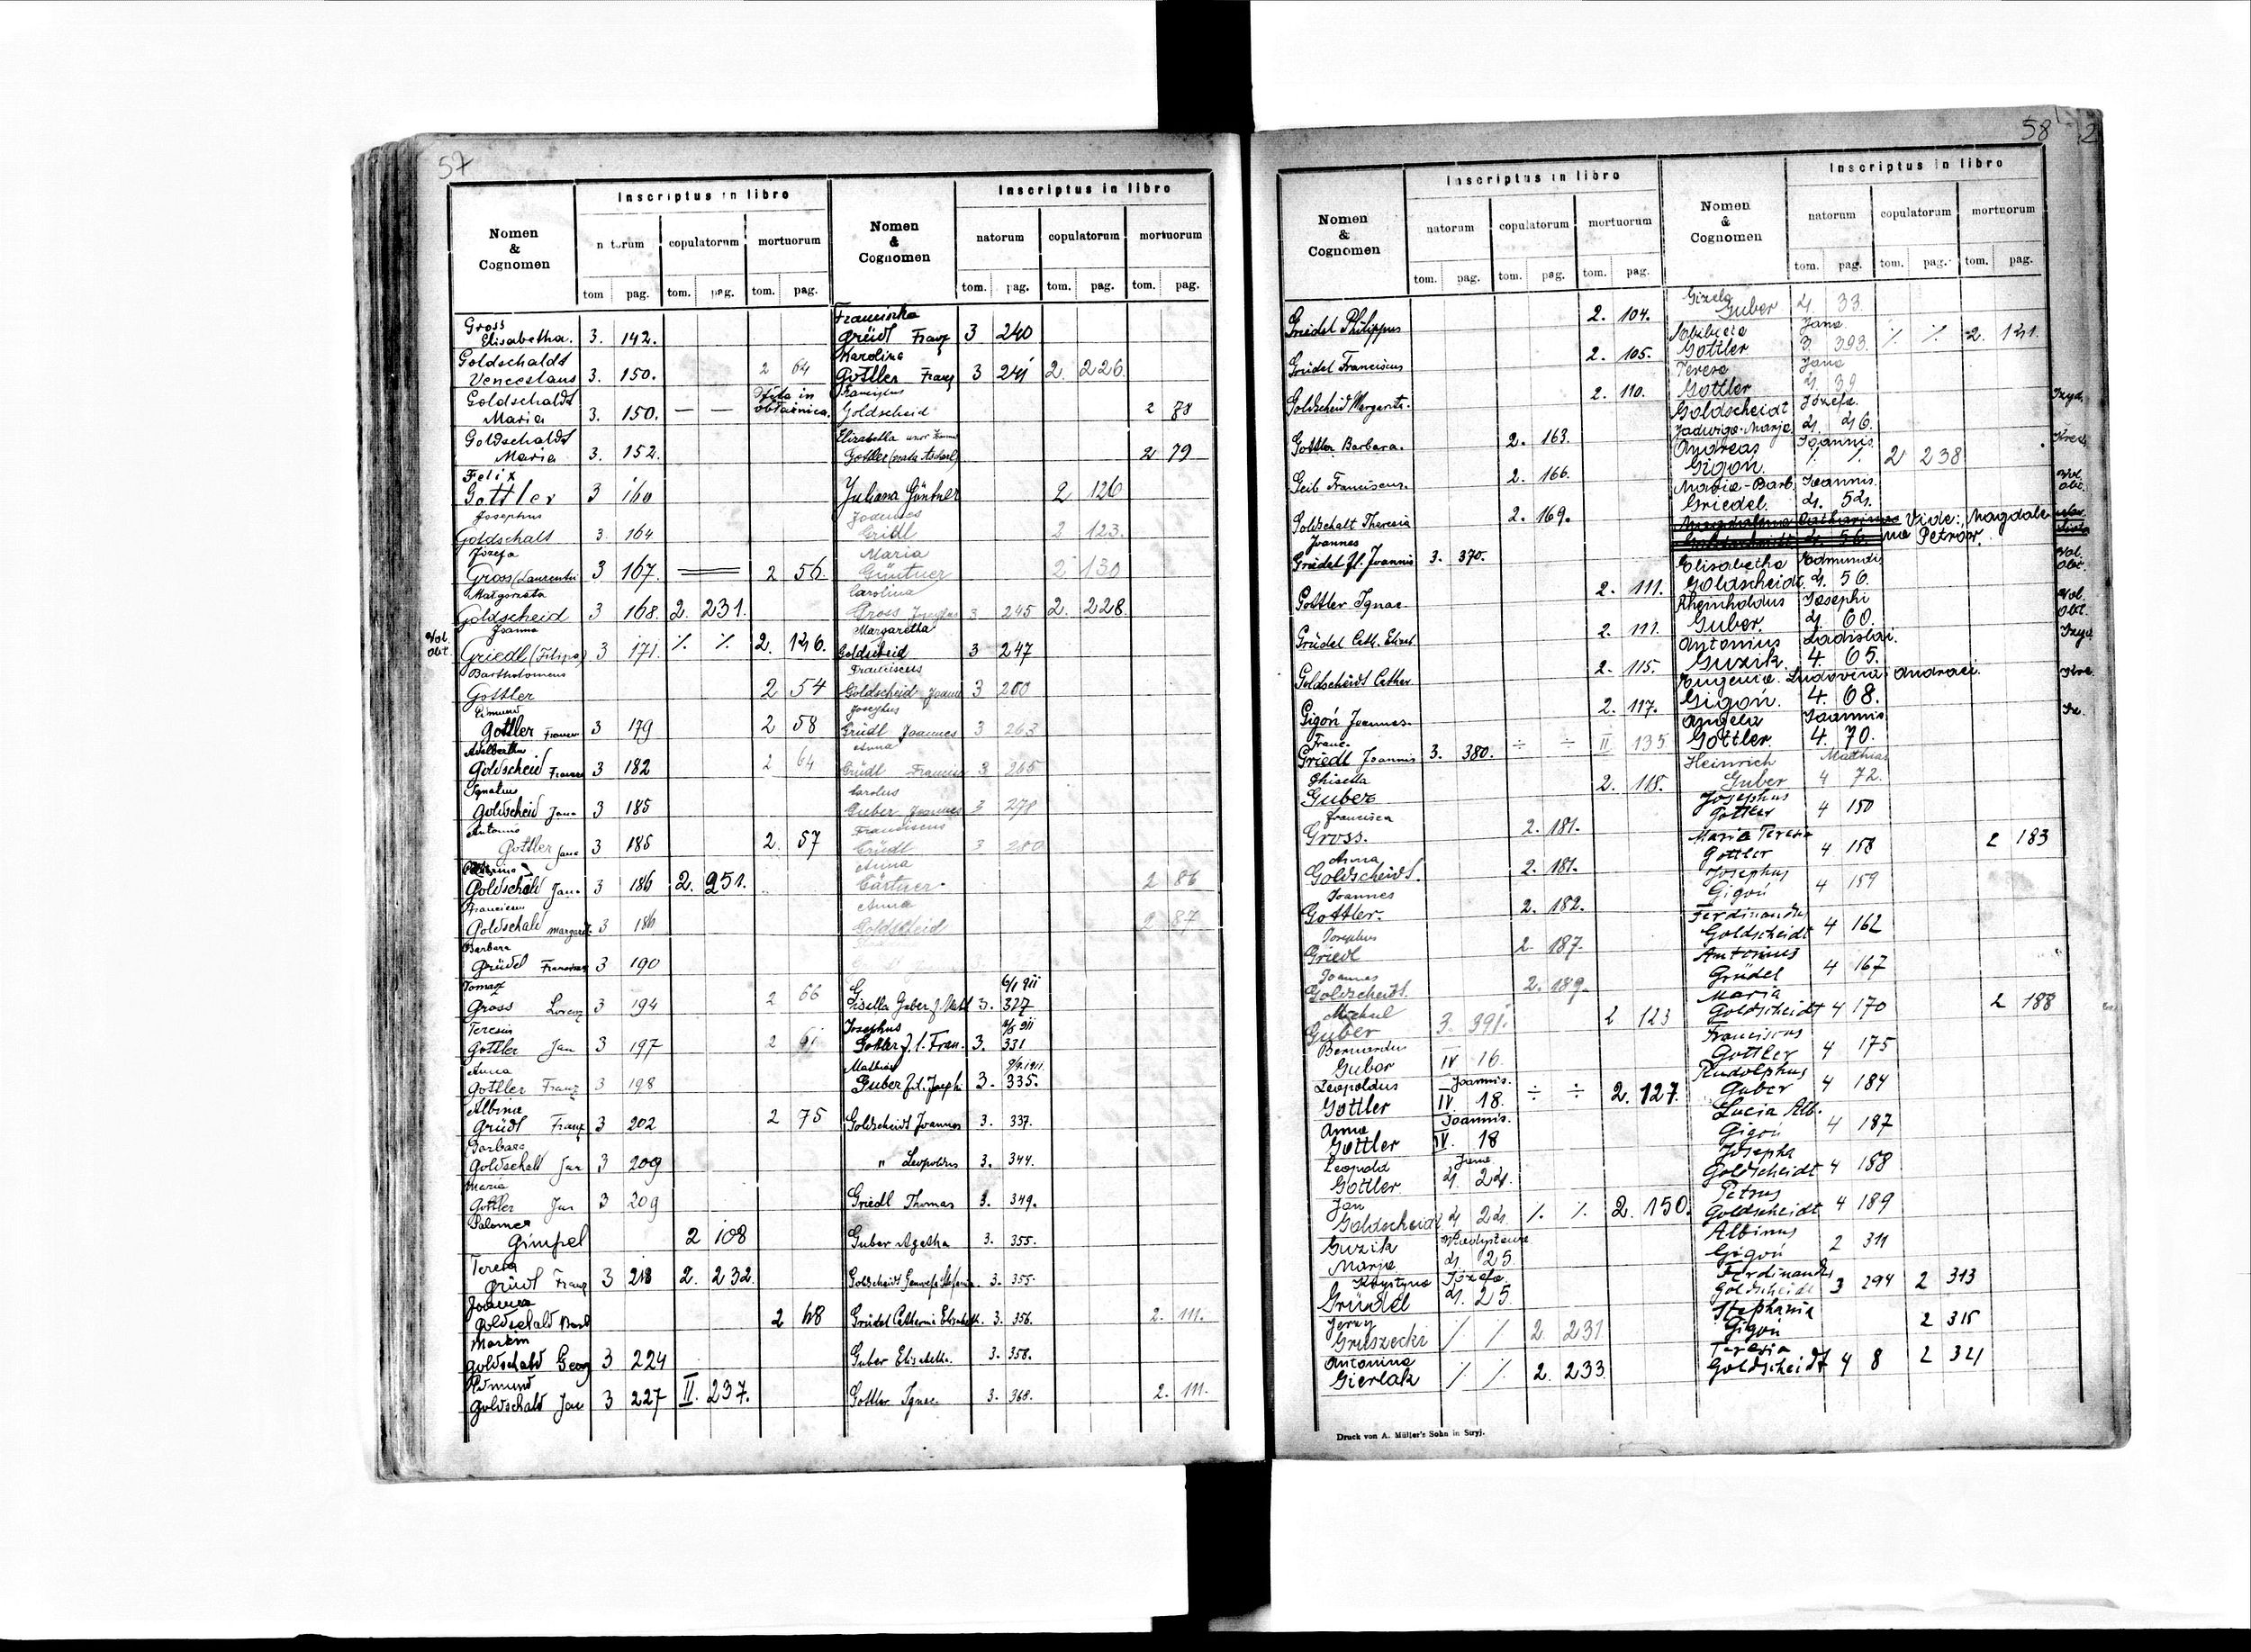 57
Inscriptus in libro
Inscriptus in libro
Nomen & Cognomen
natorum copulatorum mortuorum
Nomen & Cognomen
natorum copulatorum mortuorum
tom. pag. tom. pag. tom. pag.
tom. pag. tom. pag. tom. pag.
Gross
Elisabetha. 3. 142.
Goldschaldt
Venceslaus 3. 150. 2 64
Goldschaldt
Maria 3. 150. — —
Goldschaldt
Maria 3. 152.
Felix
Gottler 3 160
Josephus
Goldschalt 3 164
Józefa
Gross (Laurentii 3 167. 2 56.
Małgorzata
Goldscheid 3 168. 2. 231.
Joanna
Vol. Obt. Griedl (Filipa) 3 171. % % 2. 146.
Bartholomeus
Gottler 2 54
Edmund
Gottler 3 179 2 58
Adalbertha
Goldscheid 3 182 2 64
Ignatius
Goldscheid Jana 3 185
Antonina
Gottler Jana 3 185 2. 57
Goldschald Jana 3 186 2. 251.
Francisca
Goldschald margaret 3 186
Barbara
Grüdel 3 190
Tomasz
Gross Lorenz 3 194 2 66
Gottler Jan 3 197 2
Anna
Gottler Franz 3 198
Albina
Grüdl Franz 3 202 2 75
Barbara
Goldschald Jan 3 209
Maria
Gottler Jan 3 209
Salomea
Gimpel 2 108
Teresa
Grüdl Franz 3 218 2. 232.
Joanna
Goldschald 2 68
Martin
Goldschald Georg 3 224
Edmund
Goldschald Jan 3 227 II. 237.
Franciska
Greidl Franz 3 240
Karolina
Gottler Franz 3 241 2. 226.
Goldscheid 2 78
Elizabetha
Gottler 2 79
Juliana Güntner 2 126
Joannes
Gridl 2 123.
Maria
Güntner 2 130
Carolina
Gross Josephus 3 245 2. 228.
Margaretha
Goldscheid 3 247
Franciscus
Goldscheid 3 260
Josephus
Grüdl Joannes 3 263
Anna
Grüdl 3 265
Carolus
Guber Joannes 3 278
Franciscus
Grüdl 3 280
Anna
Gärtner. 2 86
Anna
Goldscheid 2 87
Gisella Guber 3. 327
Josephus
Gottler f. l. Fran. 3. 331
Mathias
Guber fil. Josephi 3. 335.
Goldscheidt Joannes 3. 337.
" Leopoldus 3. 344.
Griedl Thomas 3. 349.
Guber Agatha 3. 355.
Goldscheidt Genwefa Stefania. 3. 355.
Grüdel Catherina Elisabeth. 3. 356. 2. 111.
Guber Elisabetha. 3. 358.
Gottler Ignac. 3. 368. 2. 111.
58
Inscriptus in libro
Inscriptus in libro
Nomen & Cognomen
natorum copulatorum mortuorum
Nomen & Cognomen
natorum copulatorum mortuorum
tom. pag. tom. pag. tom. pag.
tom. pag. tom. pag. tom. pag.
Griedel Philippus 2. 104.
Griedel Franciscus 2. 105.
Goldscheid Margareta. 2. 110.
Gottler Barbara. 2. 163.
Geib Franciscus. 2. 166.
Goldschalt Theresia 2. 169.
Joannes
Griedel fl. Joannis 3. 370.
Gottler Ignac. 2. 111.
Grüdel Cath. Elisab. 2. 111.
Goldscheidt Cather 2. 115.
Gigoń Joannes. 2. 117.
Franc.
Griedl Joannis 3. 380. ÷ ÷ II 135
Ghisella
Guber 2. 118.
Francisca
Gross. 2. 181.
Anna
Goldscheidt. 2. 181.
Joannes
Gottler. 2. 182.
Josephus
Griedl 2. 187.
Joannes
Goldscheidt. 2. 189.
Michael
Guber 3. 391. 2 123
Bernardus
Guber IV 16.
Leopoldus Joannis.
Gottler IV 18. ÷ ÷ 2. 127.
Anna Joannis.
Gottler IV. 18
Leopold Jana
Gottler 4. 24.
Jan
Goldscheidt 4 24. % % 2. 150.
Guzik Władysława
Marja 4. 25.
Krystyna Józefa
Gründel 4. 25.
Jerzy
Gruszecki % % 2. 231
Antonina
Gierlak % % 2. 233
Gizela
Guber 4. 33.
Jana
Gottler 3. 393. % % 2. 141.
Teresa Jana
Gottler 4. 39
Goldscheidt Józefa.
Jadwiga-Marja 4. 46.
Andreas Joannis.
Gigoń. % % 2 238
Maria-Barb. Joannis.
Griedel. 4. 54.
Vide: Magdalena Petrów.
Elisabetha Edmundi
Goldscheidt. 4. 56.
Rheinholdus Josephi
Guber. 4. 60.
Antonius Ladislai.
Guzik. 4. 65.
Eugenia-Ludovica Andraei.
Gigoń. 4. 68.
Angela Joannis
Gottler. 4. 70.
Heinrich Mathias
Guber 4 72.
Josephus
Gottler 4 150
Maria Teresa
Gottler 4 158 2 183
Josephus
Gigoń 4 159
Ferdinandus
Goldscheidt 4 162
Antonius
Grüdel 4 167
Maria
Goldscheidt 4 170 2 188
Franciscus
Gottler 4 175
Rudolphus
Guber 4 184
Lucia Alb.
Gigoń 4 187
Josepha
Goldscheidt 4 188
Petrus
Goldscheidt 4 189
Albinus
Gigoń 2 311
Ferdinandus
Goldscheidt 3 294 2 313
Stephania
Gigoń 2 315
Teresia
Goldscheidt 4 8 2 321
Druck von A. Müller's Sohn in Stryj.